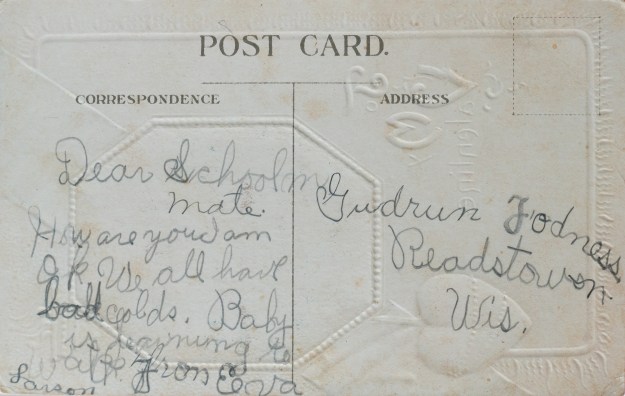 POST CARD.
CORRESPONDENCE
ADDRESS
Dear Schoolm
mate.
How are you I am
O.K. We all have
bad colds. Baby
is learning to
walk. From Eva
Larson
Gudrun Fodness
Readstown
Wis.